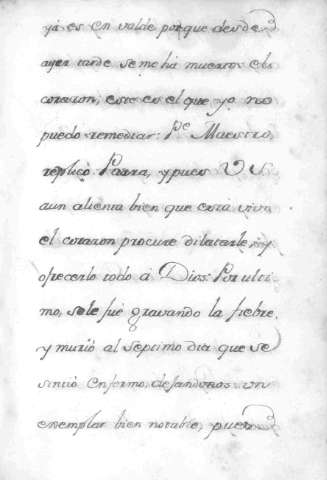 ya es en valde porque desde
ayer tarde se me ha muerto el
corazon, este es el que yo no
puedo remediar: Pe Maestro,
replicò Parra, y pues V S
aun alienta bien que està vivo
el corazon procure dilatarle, y
ofrecerlo todo à Dios: Por ulti-
mo, sele fuè gravando la fiebre,
y muriò al septimo dia que se
sintiò enfermo, dejandonos un
exemplar bien notable, pues